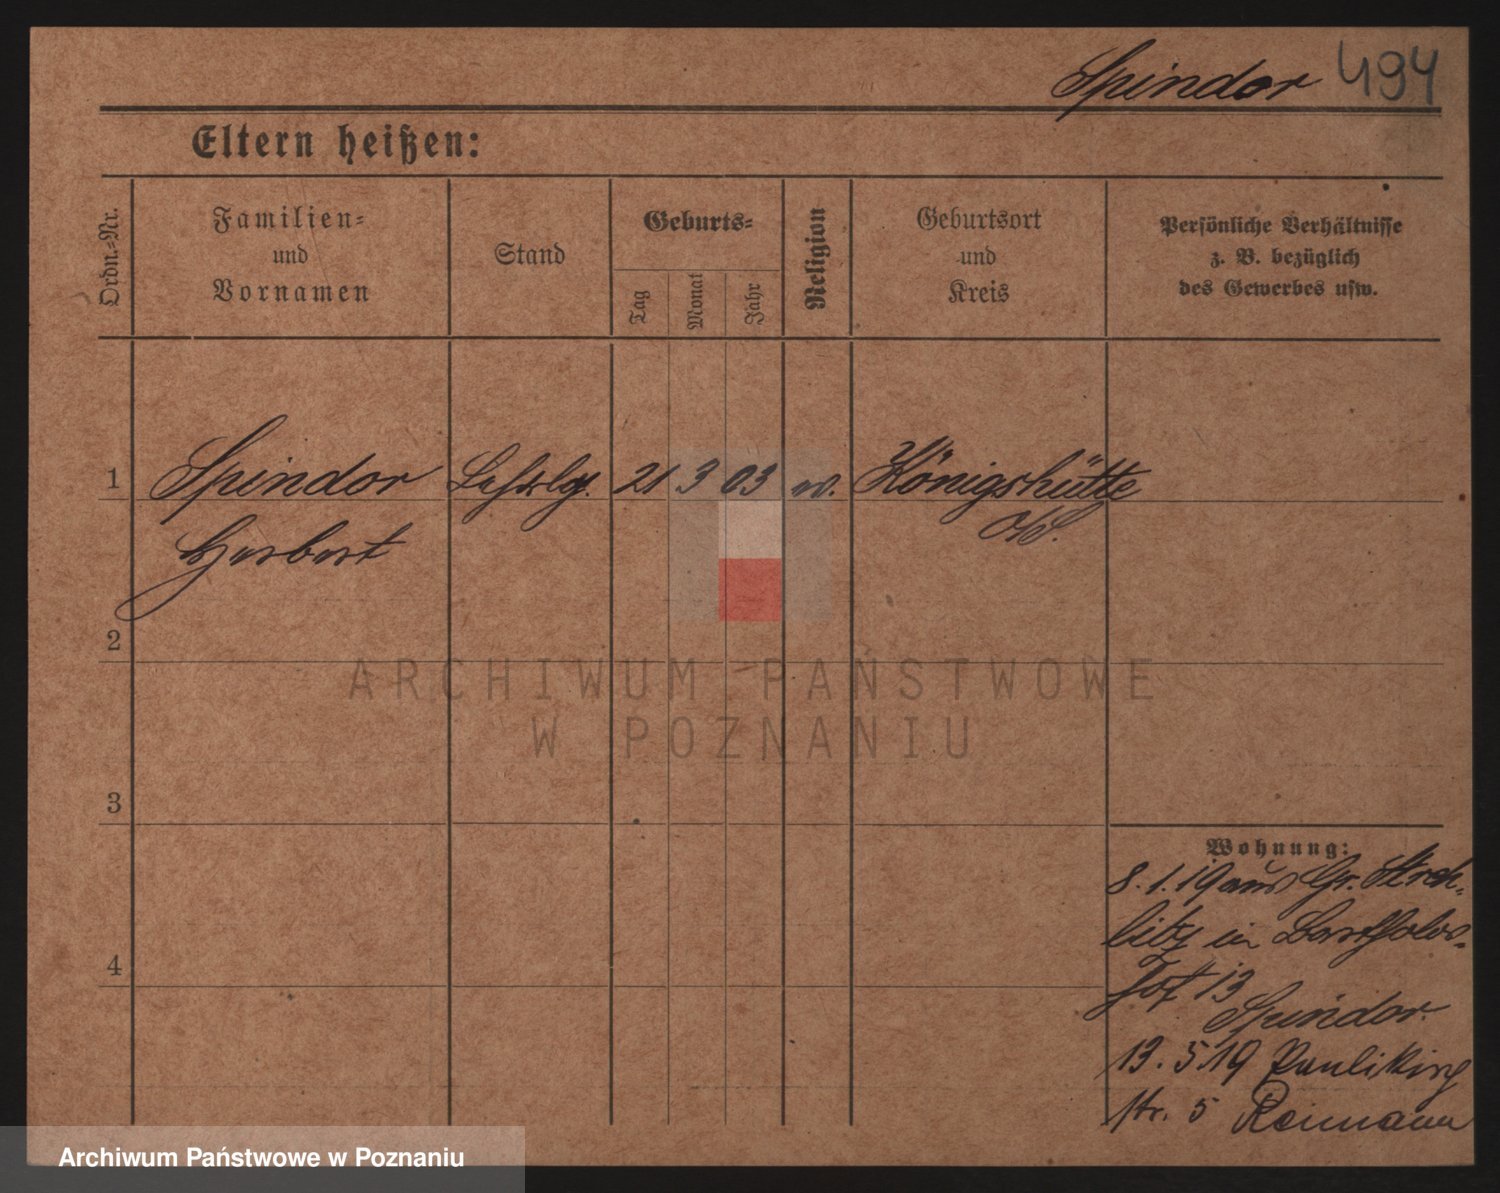 Spindor 494
Eltern heißen:
Ordn.-Nr.
Familien-
und
Vornamen
Stand
Geburts-
Tag
Monat
Jahr
Religion
Geburtsort
und
Kreis
Persönliche Verhältnisse
z. B. bezüglich
des Gewerbes usw.
1 Spindor Lehrlg. 21 3 03 Königshütte
O/S.
Herbert
2
ARCHIWUM PAŃSTWOWE
W POZNANIU
3
4
Wohnung:
8.1.19 aus Gr. Streh-
litz in Bartholds-
hof 13
Spindor.
13.5.19 Paulikirch
str. 5 Reimann
Archiwum Państwowe w Poznaniu